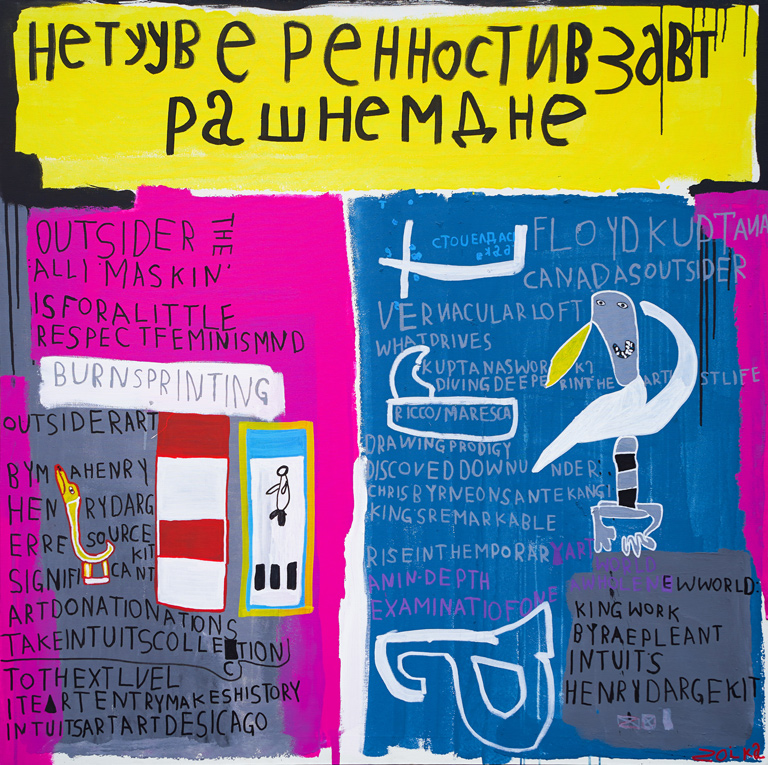 нетууверенностивзавт
рашнемдне
OUTSIDER THE
ALLI'MASKIN'
ISFORALITTLE
RESPECTFEMINISMND
BURNSPRINTING
OUTSIDERART
BYMAHENRY
HENRYDARG
ERRESOURCE
KIT
SIGNIFICANT
ARTDONATIONATIONS
TAKEINTUITSCOLLECTION
TOTHEXTLVEL
ITEARTENTRYMAKESHISTORY
INTUITSARTARTDESICAGO
FLOYDKUPTANA
CANADASOUTSIDER
VERNACULARLOFT
WHATDRIVES
KUPTANASWORK?
DIVINGDEEPERINTHEARTISTLIFE
RICCO/MARESCA
DRAWINGPRODIGY
DISCOVEDDOWNUNDER..
CHRISBYRNEONSANTEKANGI
KINGSREMARKABLE
RISEINTHEMPORARYART
WORLD
ANIN-DEPTH
EXAMINATIOFONE
EWWORLD
KINGWORK
BYRAEPLEANT
INTUITS
HENRYDARGEKIT
ZOLKA